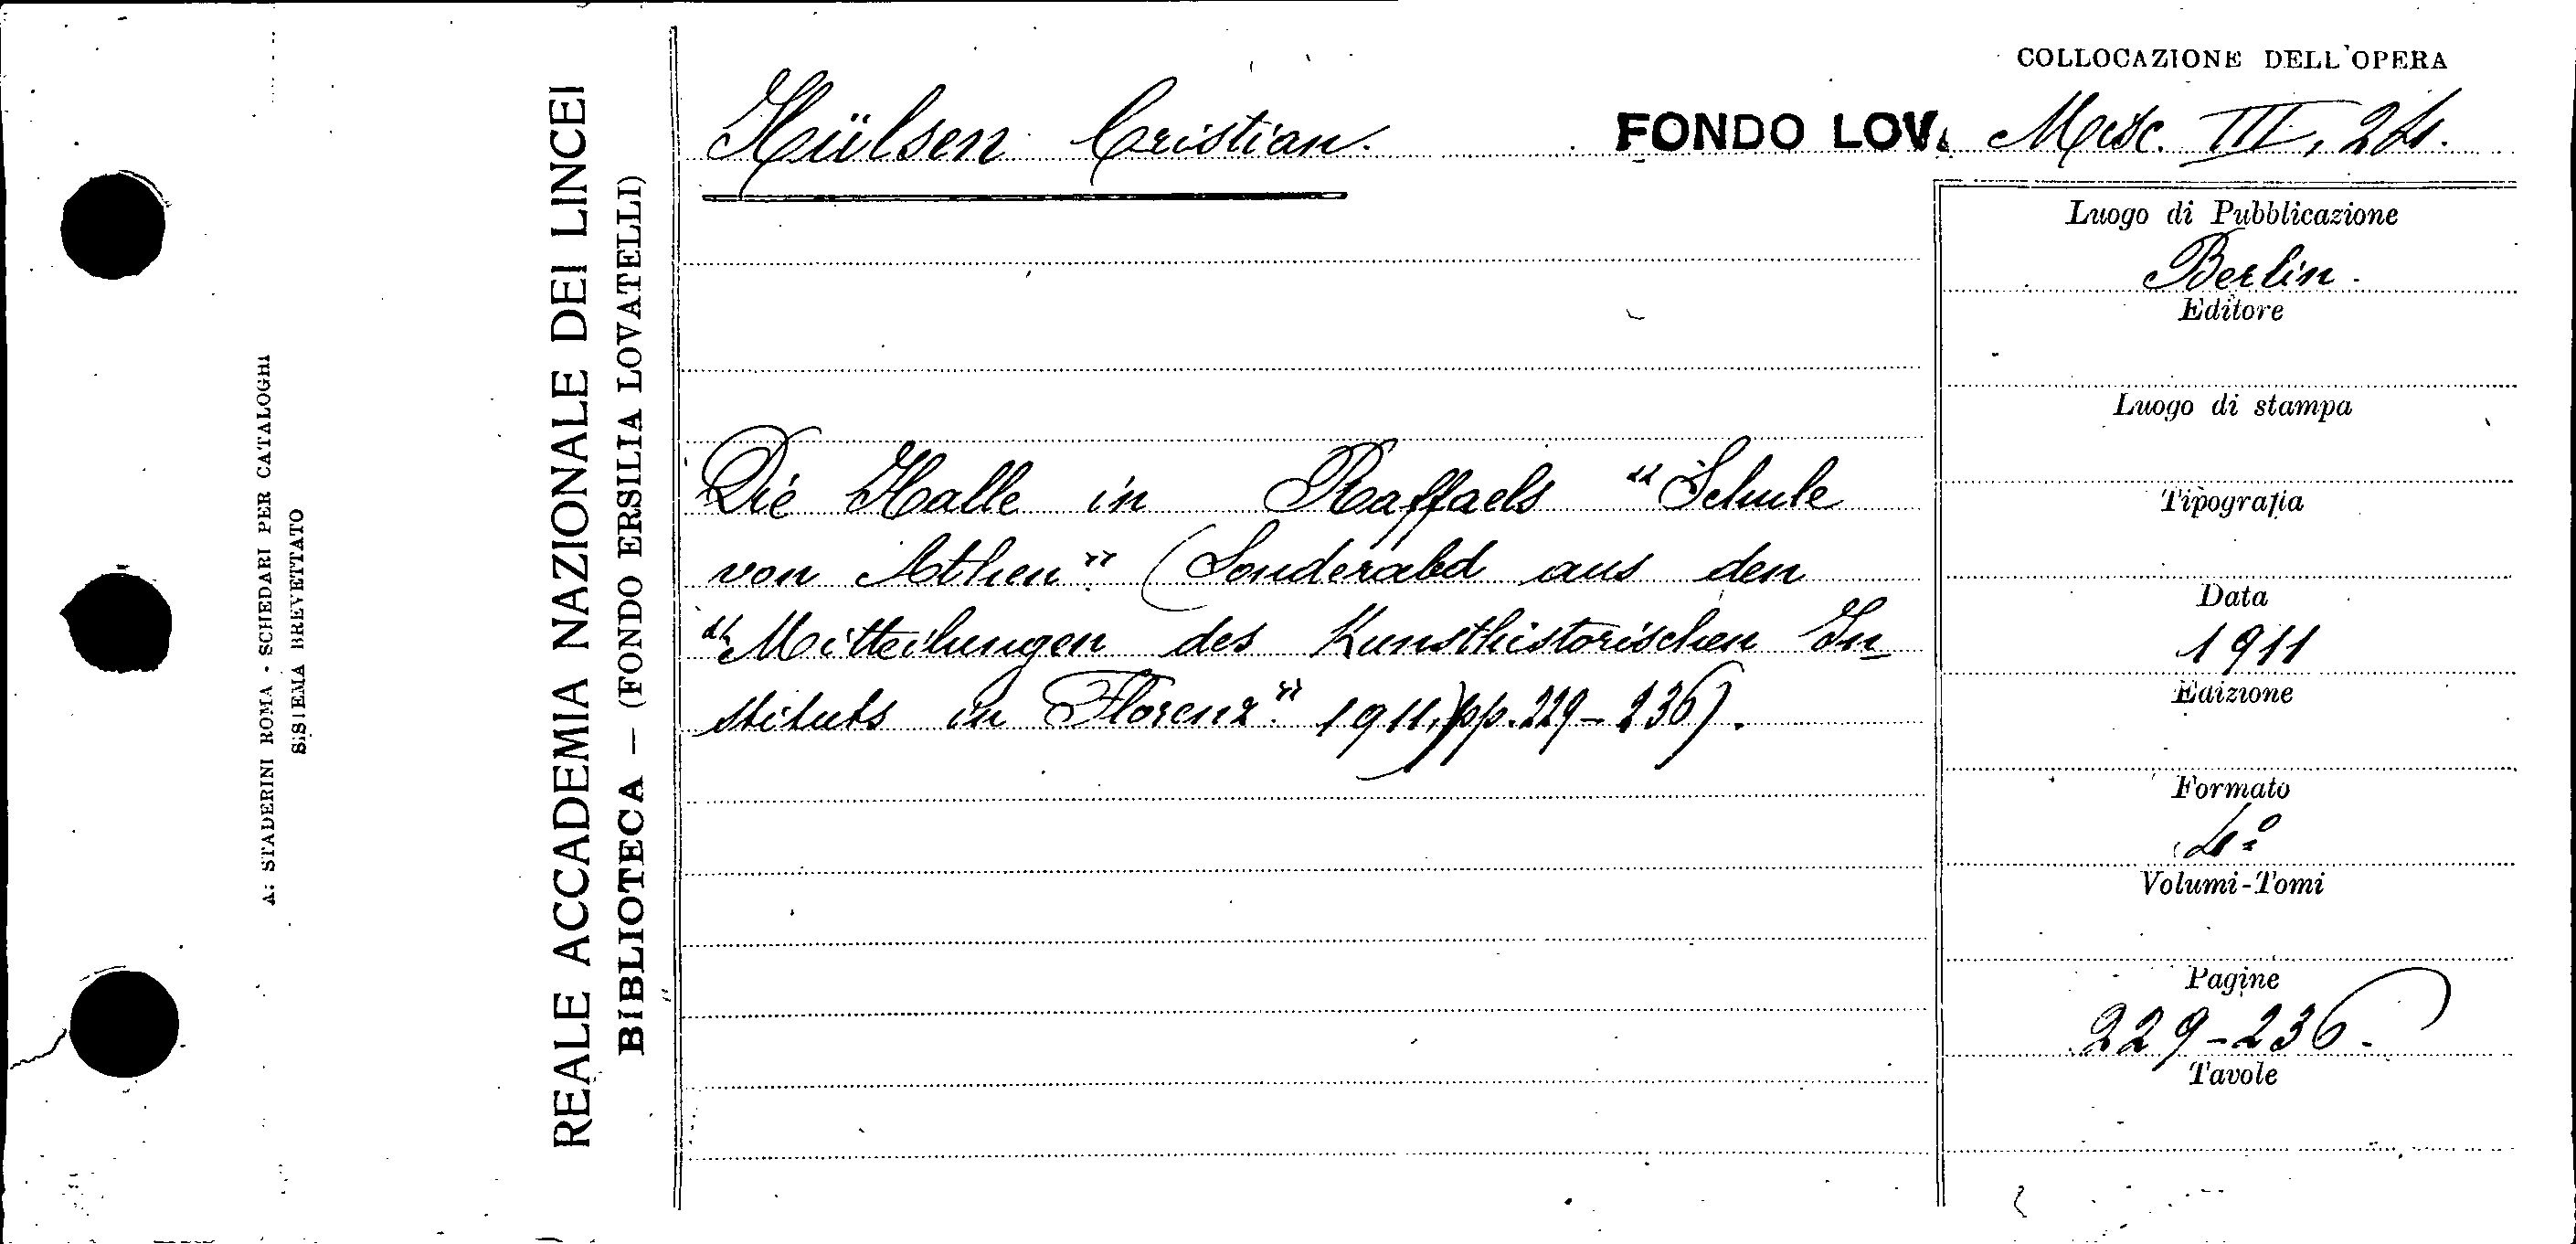 COLLOCAZIONE DELL'OPERA
Hülsen Cristian.
FONDO LOV. Misc. III, 24.
Luogo di Pubblicazione
Berlin.
Editore
Luogo di stampa
Tipografia
Data
1911
Edizione
Formato
4º
Volumi-Tomi
Pagine
229-236.
Tavole
Die Halle in Raffaels "Schule
von Athen" (Sonderabd aus den
"Mitteilungen des Kunsthistorischen In-
stituts in Florenz" 1911,) pp. 229-236).
REALE ACCADEMIA NAZIONALE DEI LINCEI
BIBLIOTECA — (FONDO ERSILIA LOVATELLI)
A: STADERINI ROMA - SCHEDARI PER CATALOGHI
SISTEMA BREVETTATO